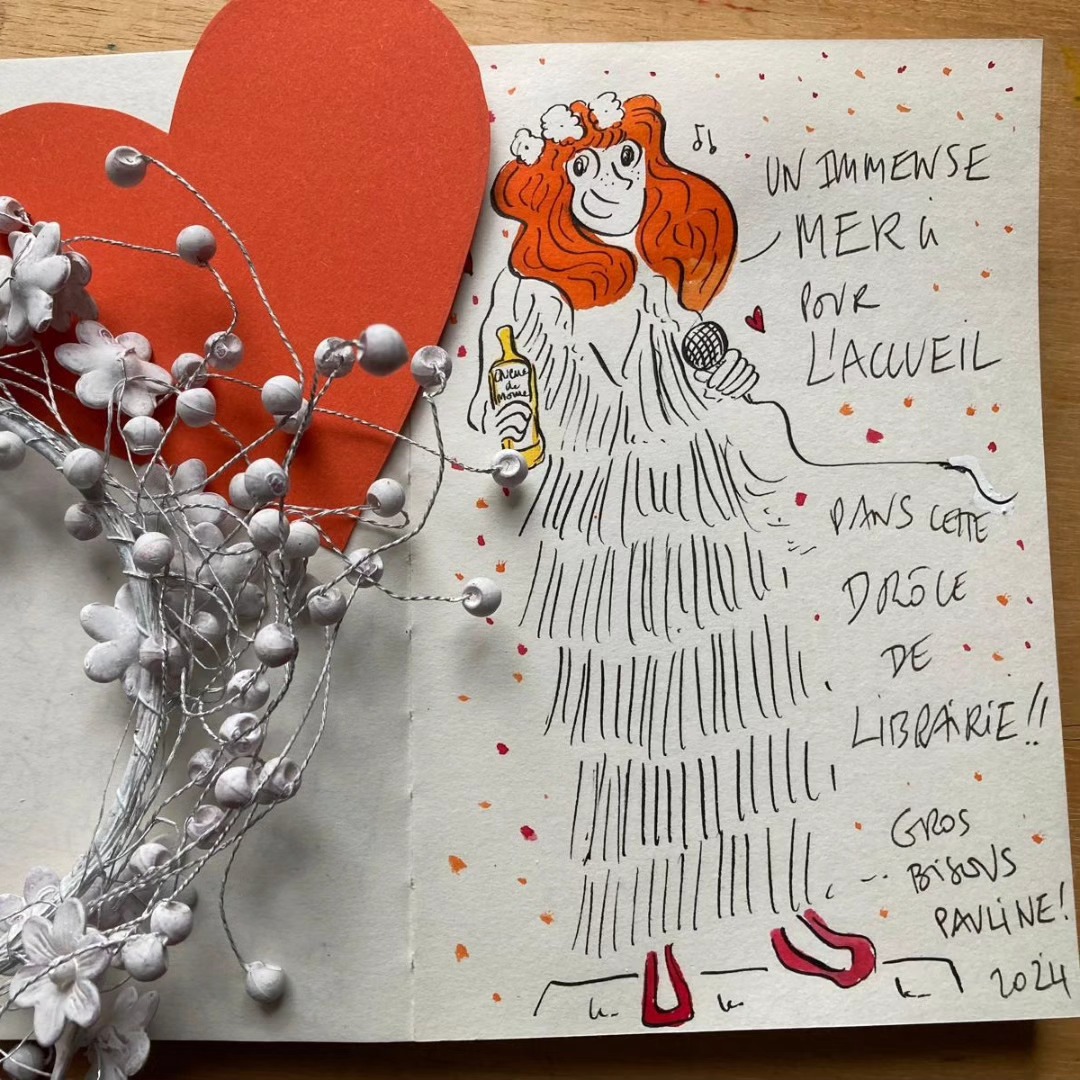 UN IMMENSE
MERCi
POUR
L'ACCUEIL
DANS CETTE
DRÔLE
DE
LIBRAIRIE!!
de
GROS
BISOUS
PAULINE!
2024